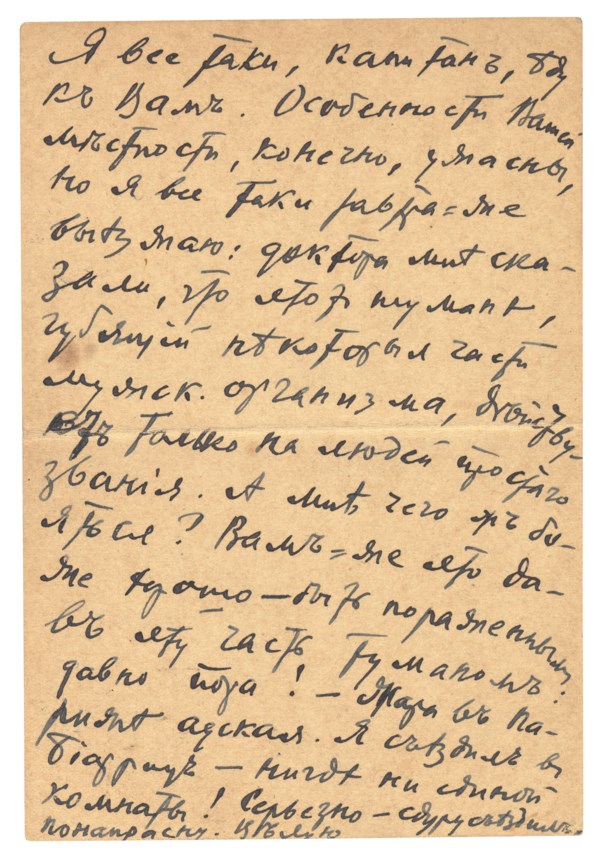 Я все таки, капитанъ, ѣду
къ Вамъ. Особенности Вашей
мѣстности, конечно, ужасны,
но я все таки завтра=же
выѣзжаю: доктора мнѣ ска-
зали, что этотъ туманъ,
губящій нѣкоторыя части
мужск. организма, дѣйству-
етъ только на людей простаго
званія. А мнѣ чего жъ бо-
яться? Вамъ=же это да-
же хорошо — быть пораженнымъ
въ эту часть туманомъ:
давно пора! — Жара въ Па-
рижѣ адская. Я съѣздилъ въ
Біаррицъ — нигдѣ ни единой
комнаты! Серьезно — сдуру съѣздилъ,
понапрасну. Цѣлую